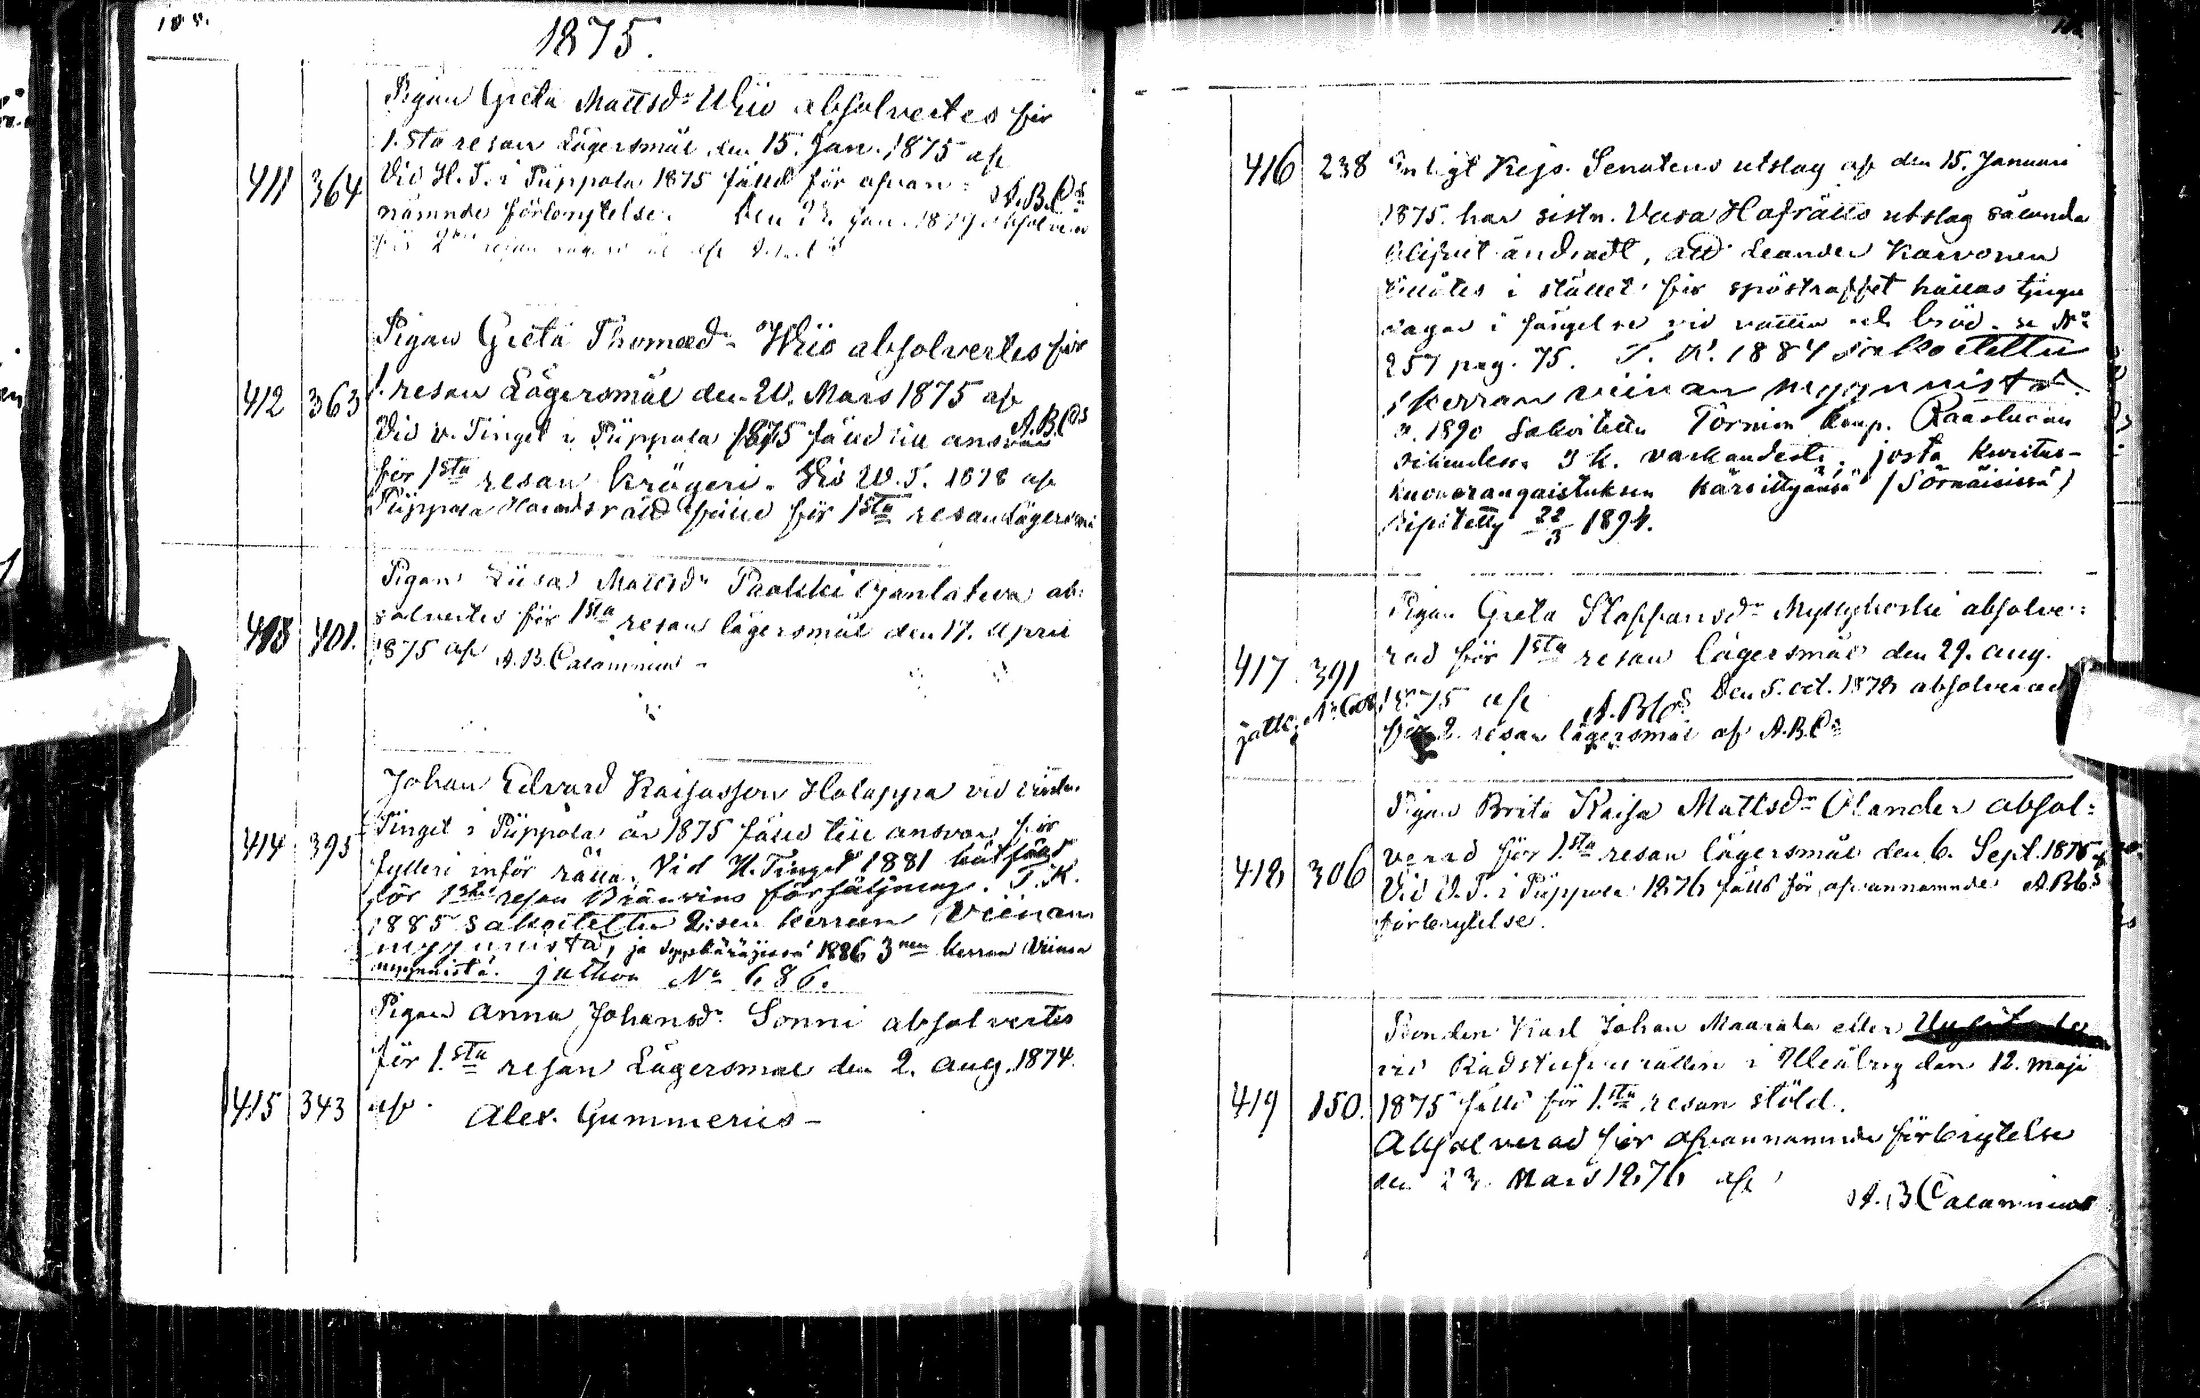 1875.
Pigan Greta Mattsdr Uhio absolvertes för
1.sta resan Lägersmål den 15. Jan. 1875 af
411 364 Vid H. T. i Piippola 1875 fälld för ofvan- A.B.Cs
nämnde förbrytelse. Den Jan. 1879 absolverad
för 2 resan
Pigan Greta Thomasdr Uhio absolvertes för
412 363 1. resan Lägersmål den 20. Mars 1875 af
A.B.Cs
Vid v. Tinget i Piippola 1875 fälld till ansvar
för 1sta resan krögeri. Vid W. T. 1878 af
Piippola Häradsrätt fälld för 1sta resan Lägersmål
Pigan Liisa Mattsdr ab-
solvertes för 1sta resan lägersmål den 17. April
413 401. 1875 af A. B. Calamnius -
Johan Edvard Kaisasson Holappa vid vinter
414 393 Tinget i Piippola år 1875 fälld till ansvar för
fylleri inför rätta. Vid H. Tinget 1881 bötfälld
för 1sta resan Bränvins försäljning. T. K.
1885 Sakoitettu 2:sen kerran Viinan
myynnistä, ja Syyskäräjissä 1886 3nen kerran Viinan
myynnistä. jatkoa No 686.
Pigan Anna Johansdr Sonni absolvertes
för 1.sta resan Lägersmål den 2. Aug. 1874.
415 343 af.
Alex. Gummerus -
416 238 Enligt Kejs. Senatens utslag af den 15. Januari
1875. har sistn. Vasa Hofrätts utslag sålunda
blifvit ändradt, att Leander Karvonen
tillåtes i stället för spöstraffet hållas tjugu
dagar i fängelse vid vatten och bröd. se No
257 pag. 75. T. K. 1884 sakoitettu
1 kerran viinan myynnistä.
v. 1890 Sakoitettu Tornion kaup. Raastuvan
oikeudessa 3 k. varkaudesta, josta kuritus-
huonerangaistuksen kärsittyänsä (Sörnäisissä)
ripitetty 22/3 1894.
Pigan Greta Staffansdr Myllykoski absolve-
rad för 1sta resan lägersmål den 29. aug.
417. 391 1875 af A.B.Cs Den 5. oct. 1878 absolverad
jatk. No 608. för 2. resan lägersmål af A.B.Cs
Pigan Brita Kaisa Mattsdr Olander absol-
verad för 1.sta resan lägersmål den 6. Sept. 1875 af
418 306 Vid V. T. i Piippola 1876 fälld för ofvannämnde A.B.Cs
förbrytelse.
Bonden Karl Johan Maarala eller
vid Rådstufvurätten i Uleåborg den 12. maji
419 150. 1875 fälld för 1.sta resan stöld.
Absolverad för ofvannämnde förbrytelse
den 23. Mars 1876 af
A. B Calamnius